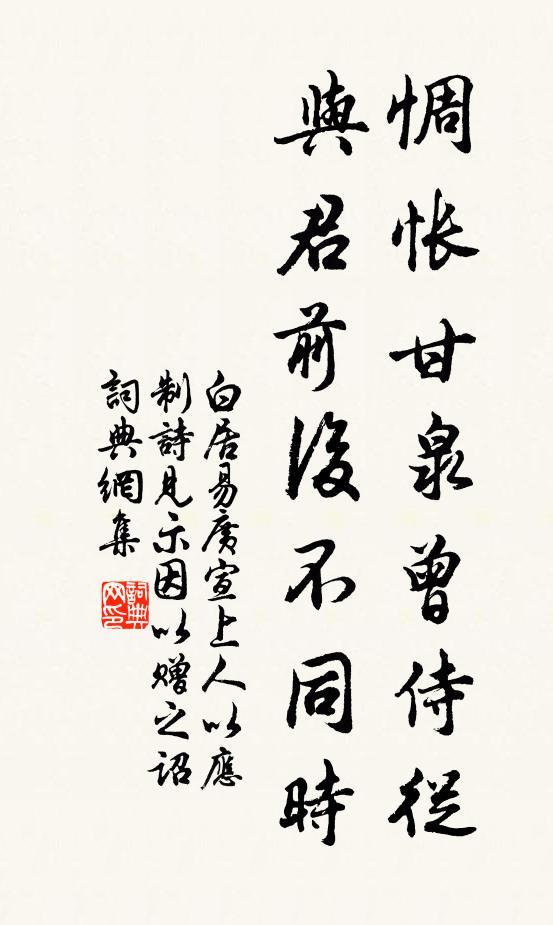 惆怅甘泉曾侍從
與君前後不同時
白居易廣宣上人以應
制詩見示因以赠之詔
詞典網集
詞典网印